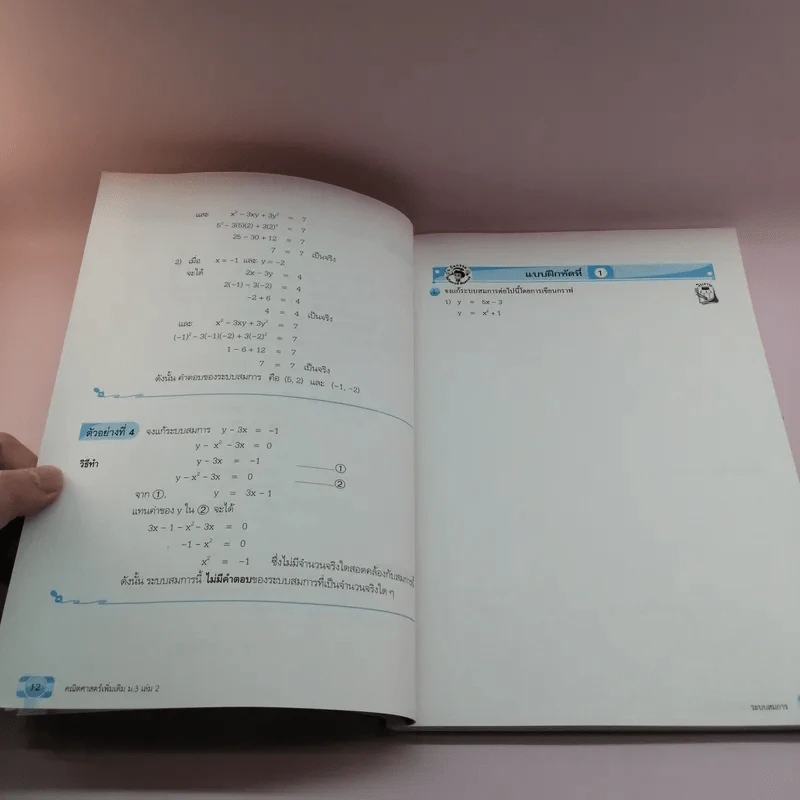 และ x² – 3xy + 3y² = 7
5² – 3(5)(2) + 3(2)² = 7
25 – 30 + 12 = 7
7 = 7 เป็นจริง
2) เมื่อ x = –1 และ y = –2
จะได้ 2x – 3y = 4
2(–1) – 3(–2) = 4
–2 + 6 = 4
4 = 4 เป็นจริง
และ x² – 3xy + 3y² = 7
(–1)² – 3(–1)(–2) + 3(–2)² = 7
1 – 6 + 12 = 7
7 = 7 เป็นจริง
ดังนั้น คำตอบของระบบสมการ คือ (5, 2) และ (–1, –2)
ตัวอย่างที่ 4 จงแก้ระบบสมการ y – 3x = –1
y – x² – 3x = 0
วิธีทำ y – 3x = –1 ①
y – x² – 3x = 0 ②
จาก ①, y = 3x – 1
แทนค่าของ y ใน ② จะได้
3x – 1 – x² – 3x = 0
–1 – x² = 0
x² = –1 ซึ่งไม่มีจำนวนจริงใดสอดคล้องกับสมการนี้
ดังนั้น ระบบสมการนี้ ไม่มีคำตอบของระบบสมการที่เป็นจำนวนจริงใด ๆ
12 คณิตศาสตร์เพิ่มเติม ม.3 เล่ม 2
แบบฝึกหัดที่ 1
จงแก้ระบบสมการต่อไปนี้โดยการเขียนกราฟ
1) y = 5x – 3
y = x² + 1
ระบบสมการ